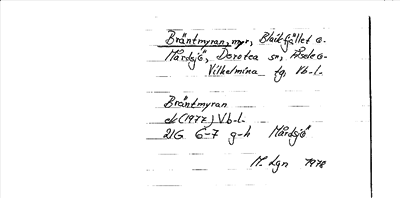 Bräntmyran, myr, Blaikfjället o.
Mårdsjö, Dorotea sn, Åsele o.
Vilhelmina tg, Vb-l.
Bräntmyran
ek (1977) Vb-l.
21G 6-7 g-h Mårdsjö
M. Lgn 1978